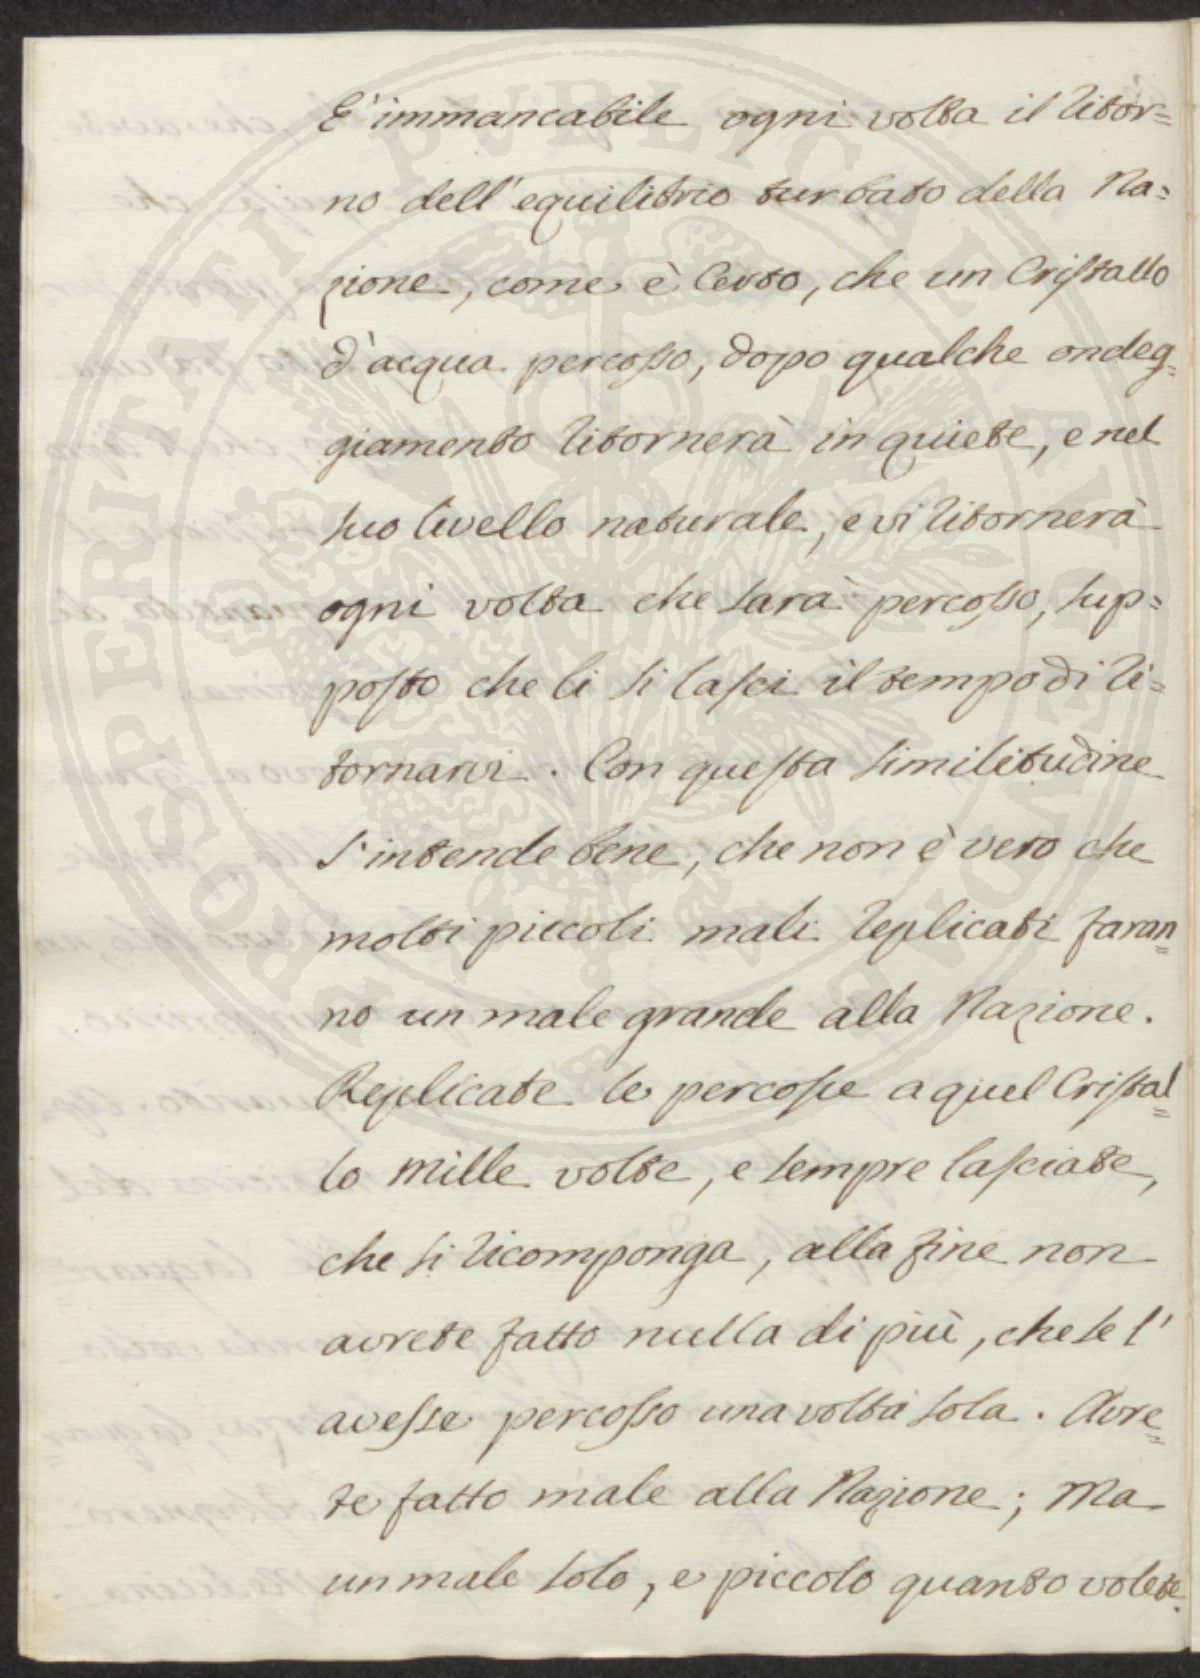 E' immancabile ogni volta il ritor=
no dell'equilibrio turbato della Na=
zione, come è Certo, che un Cristallo
d'acqua percosso, dopo qualche ondeg=
giamento ritornerà in quiete, e nel
suo livello naturale, e vi ritornerà
ogni volta che sarà percosso, sup=
posto che li si lasci il tempo di ri=
tornarvi. Con questa similitudine
s'intende bene, che non è vero che
molti piccoli mali replicati faran=
no un male grande alla Nazione.
Replicate le percosse a quel Cristal=
lo mille volte, e sempre lasciate,
che si ricomponga, alla fine non
avrete fatto nulla di più, che se l'
avesse percosso una volta sola. Avre=
te fatto male alla Nazione; Ma
un male solo, e piccolo quanto volete.
PROSPERITATI PVBLICAE AVGENDAE